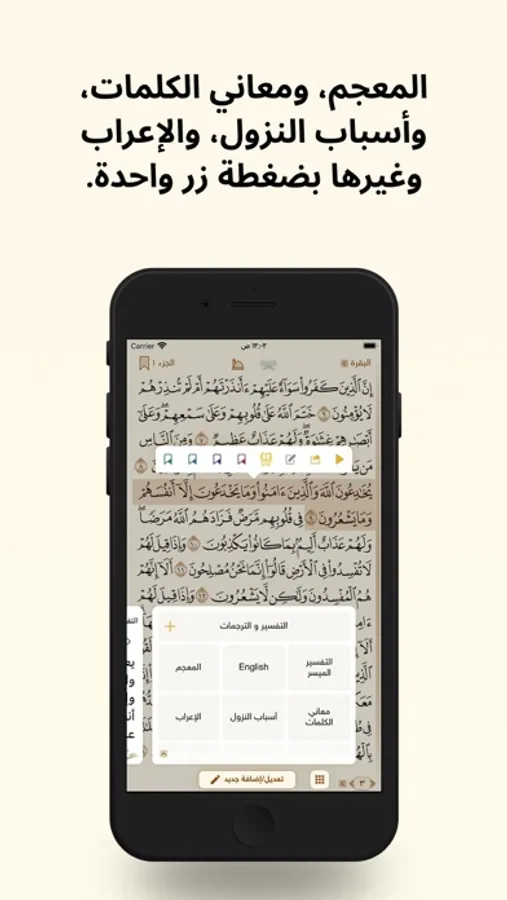 المعجم، ومعاني الكلمات،
وأسباب النزول، والإعراب
وغيرها بضغطة زر واحدة.
Carrier ١٢:٠٢ ص
البقرة الجزء ١
إِنَّ الَّذِينَ كَفَرُوا سَوَاءٌ عَلَيْهِمْ ءَأَنذَرْتَهُمْ أَمْ لَمْ تُنذِرْهُمْ
لَا يُؤْمِنُونَ ٦ خَتَمَ اللَّهُ عَلَىٰ قُلُوبِهِمْ وَعَلَىٰ سَمْعِهِمْ ۖ وَعَلَىٰ
أَبْصَـٰرِهِمْ غِشَـٰوَةٌ ۖ وَلَهُمْ عَذَابٌ عَظِيمٌ ٧ وَمِنَ النَّاسِ
مَن ٨
يُخَـٰدِعُونَ اللَّهَ وَالَّذِينَ ءَامَنُوا وَمَا يَخْدَعُونَ إِلَّا أَنفُسَهُمْ
وَمَا يَشْعُرُونَ ٩ فِي قُلُوبِهِم مَّرَضٌ فَزَادَهُمُ اللَّهُ مَرَضًا ۖ
وَلَهُمْ عَذَابٌ أَلِيمٌ بِمَا كَانُوا يَكْذِبُونَ ١٠ وَإِذَا قِيلَ لَهُمْ
لَا تُفْسِدُوا فِي الْأَرْضِ قَالُوا إِنَّمَا نَحْنُ مُصْلِحُونَ ١١ أَلَا إِنَّهُمْ
هُمُ الْمُفْسِدُونَ وَلَـٰكِن لَّا يَشْعُرُونَ ١٢ وَإِذَا قِيلَ لَهُمْ
التفسير و الترجمات
التفسير الميسر
English
المعجم
معاني الكلمات
أسباب النزول
الإعراب
٣
تعديل/إضافة جديد